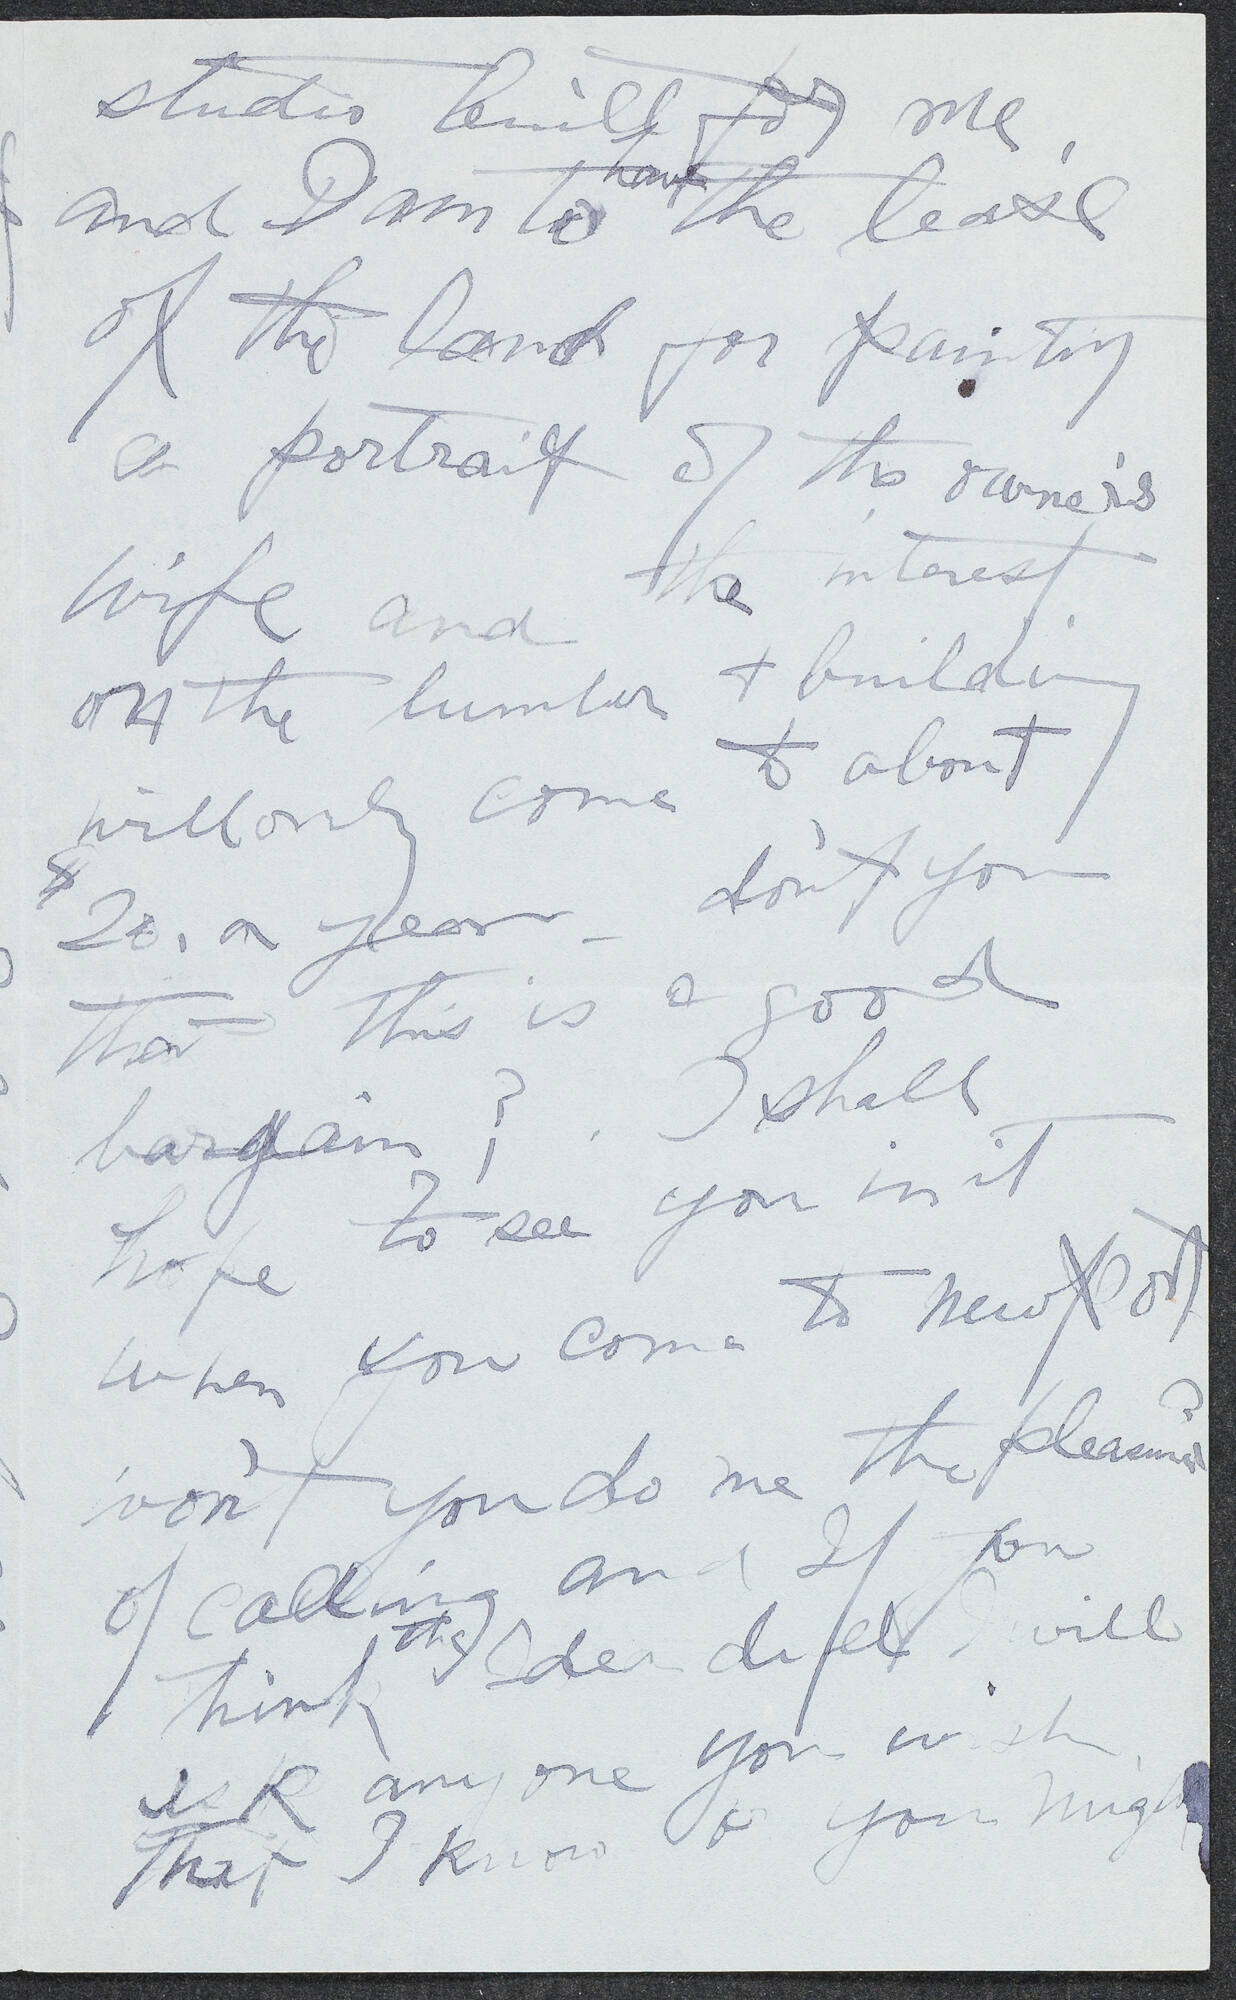 studio built for me,
and I am to have the lease
of the land for painting
a portrait of the owner's
wife and the interest
on the lumber + building
will only come to about
$20. a year – don't you
that this is a good
bargain? I shall
hope to see you in it
when you come to Newport
won't you do me the pleasure
of calling and If you
think the Idea
will
ask anyone you wish
that I know or you might